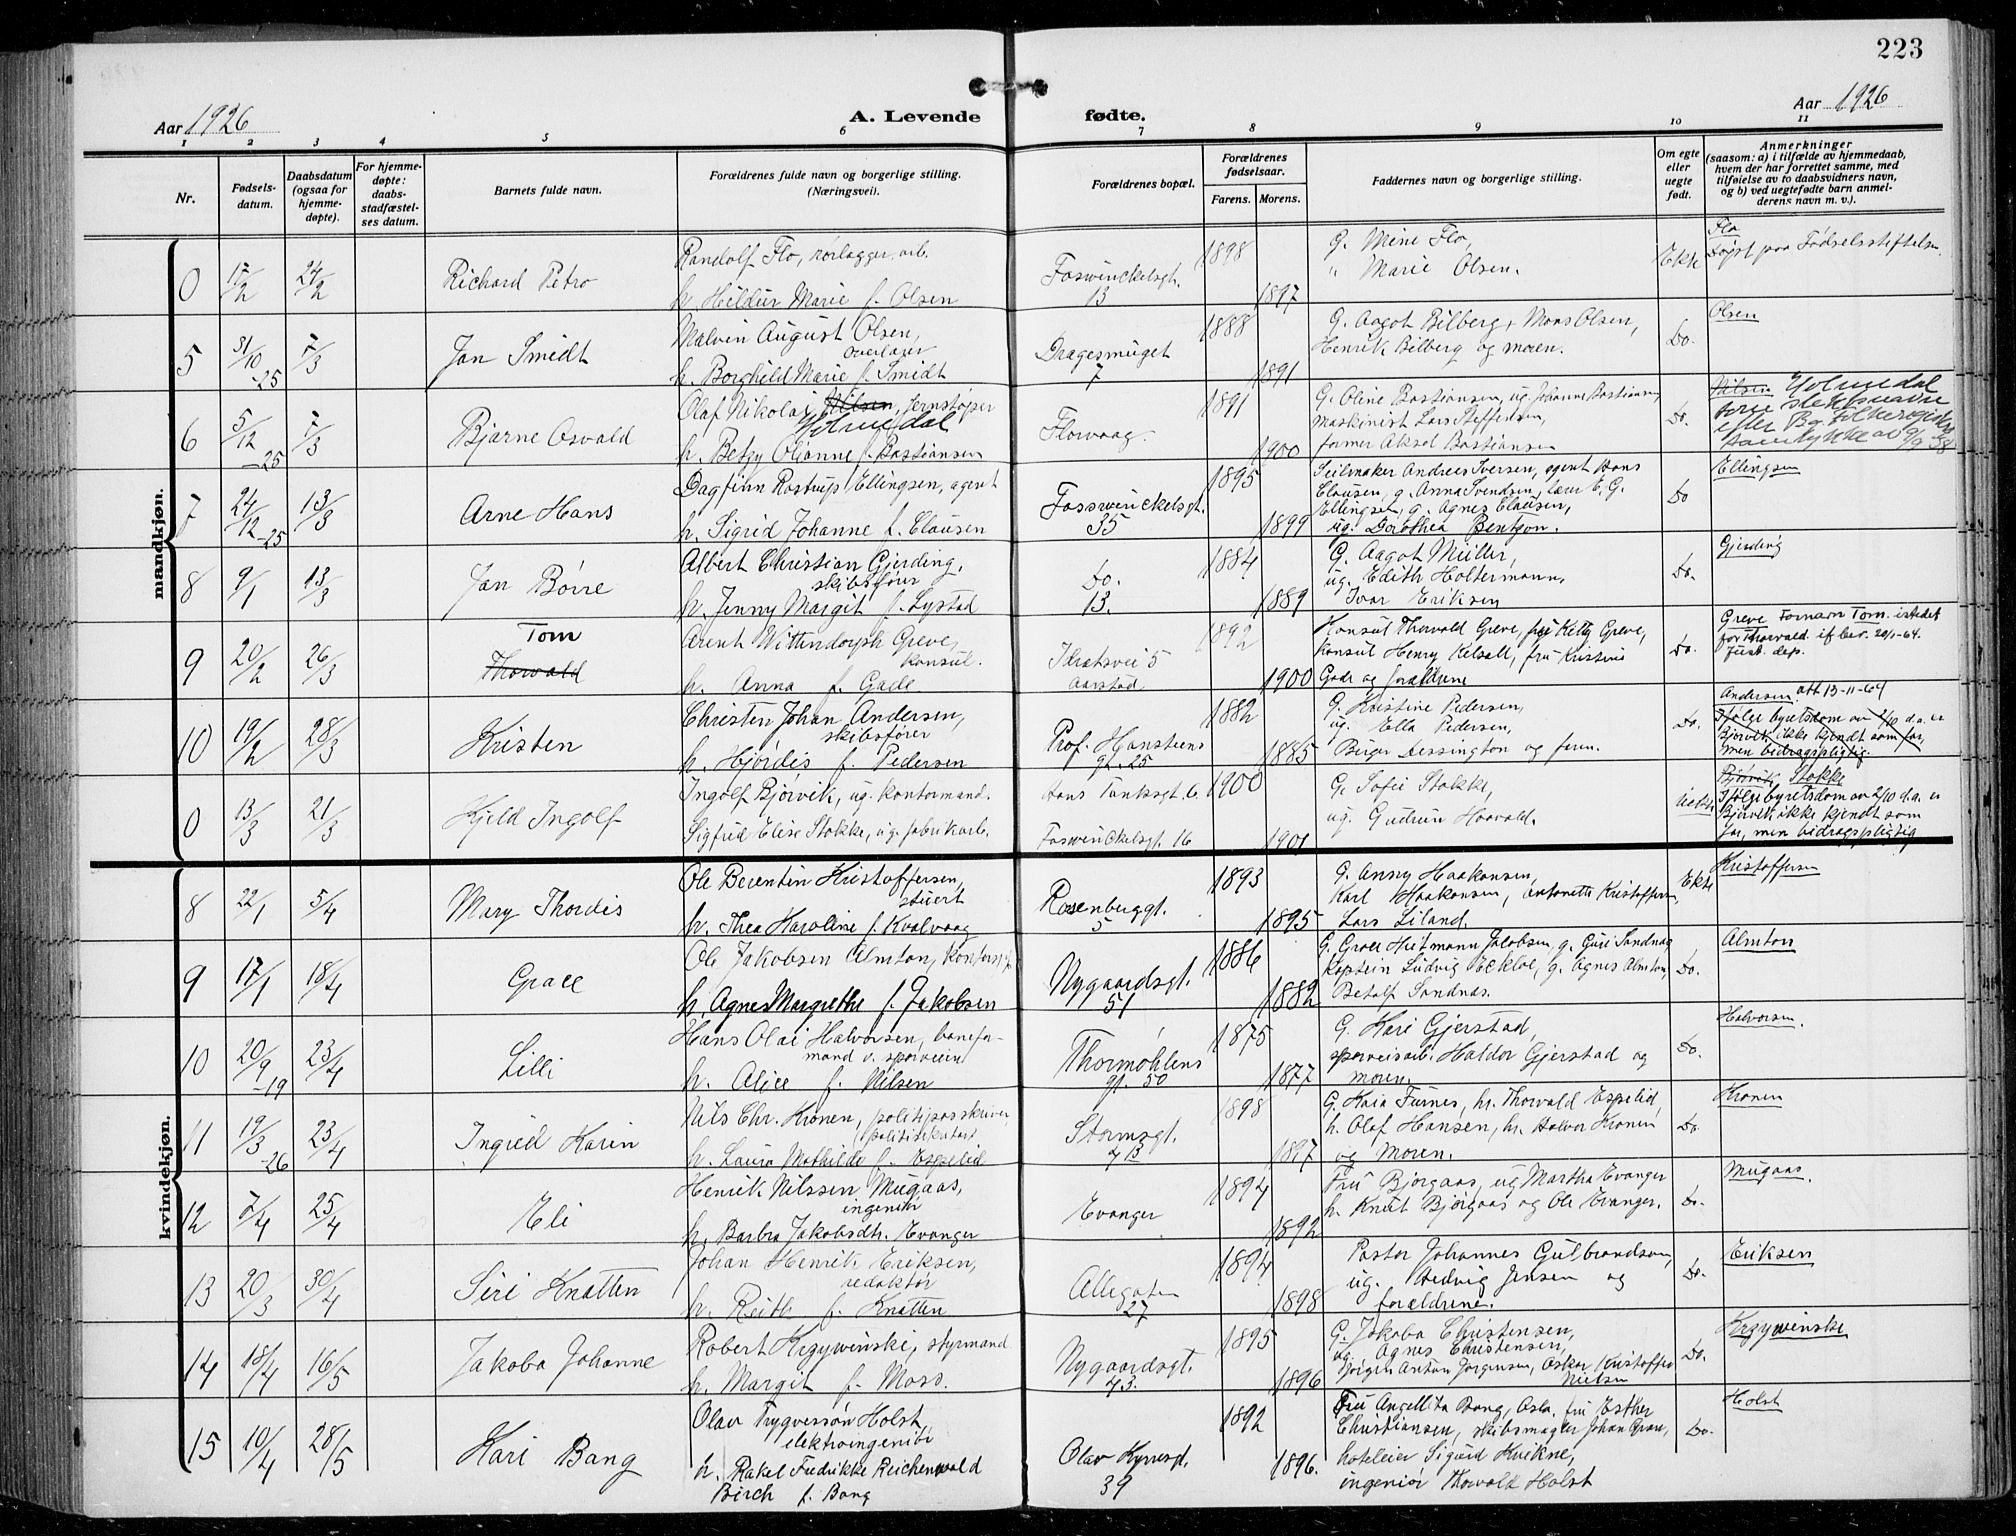 223
Aar 1926
A. Levende fødte.
Aar 1926
1 2 3 4 5 6 7 8 9 10 11
Nr.
Fødsels-
datum.
Daabsdatum
(ogsaa for
hjemme-
døpte).
For hjemme-
døpte:
daabs-
stadfæstel-
ses datum.
Barnets fulde navn.
Forældrenes fulde navn og borgerlige stilling.
(Næringsvei).
Forældrenes bopæl.
Forældrenes
fødselsaar.
Farens. Morens.
Faddernes navn og borgerlige stilling.
Om egte
eller
uegte
født.
Anmerkninger
(saasom: a) i tilfælde av hjemmedaab,
hvem der har forrettet samme, med
tilføielse av to daabsvidners navn,
og b) ved uegtefødte barn anmel-
derens navn m. v.).
mandkjøn.
0 17/2 24/2 Richard Petro
Randolf Flo, rørlægger.arb.
h. Hildur Marie f. Olsen
Foswinckelsgt.
13
1898
1897
G. Mine Flo,
" Marie Olsen.
Ekte
Flo
Døpt paa Fødselsstiftelsen.
5 31/10-25 7/3 Jan Smidt
Malvin August Olsen,
overlærer
h. Borghild Marie f. Smidt
Dragesmuget
7
1888
1891
G. Aagot Bilberg, Mons Olsen,
Henrik Bilberg og moren.
Do.
Olsen
6 5/12-25 7/3 Bjarne Osvald
Olaf Nikolai Nilsen, Jernstøper
Holmedal
h. Betzy Olianne f. Bastiansen
Florvaag
1891
1900
G. Oline Bastiansen, ug. Johanne Bastiansen
maskinist Lars Steffensen,
former Aksel Bastiansen
Do.
Nilsen Holmedal
efter Bg. Folkeregisters
samtykke av 9/9 38
7 24/12-25 13/3 Arne Hans
Dagfinn Rostrup Ellingsen, agent
h. Sigrid Johanne f. Clausen
Fosswinckelsgt.
35
1895
1899
Seilmaker Andreas Iversen, agent Hans
Clausen, g. Anna Svendsen, lærer E. G.
Ellingsen, g. Agnes Clausen,
ug. Dorothea Bentzon.
Do
Ellingsen
8 9/1 13/3 Jan Børre
Albert Christian Gjerding,
skibsfører
h. Jenny Margit f. Lystad
Do.
13.
1884
1889
G. Aagot Müller,
ug. Edith Holtermann,
Ivar Eriksen
Do.
Gjerding
9 20/2 26/3 Tom
Thorvald
Arent Wittendorph Greve,
konsul.
h. Anna f. Gade
Idrætsvei 5
Aarstad.
1892
1900
Konsul Thorvald Greve, fru Kitty Greve,
konsul Henry Kelsall, fru Kristine
Gade og forældrene
Do.
Greve Fornavn Tom. istedet
for Thorvald. if bev. 20/1-64.
Just. dep.
10 19/2 28/3 Kristen
Christen Johan Andersen,
skibsfører
h. Hjørdis f. Pedersen
Prof. Hansteens
gt. 25
1882
1885
G. Kristine Pedersen,
ug. Ella Pedersen,
Birger Lessington og faren.
Do.
Andersen. att 13-11-64
Ifølge byretsdom av 2/10 d.a. er
Bjørvik ikke kjendt som far,
men bidragspligtig
0 13/3 21/3 Kjeld Ingolf
Ingolf Bjørvik, ug. kontormand.
Sigfrid Elise Stokke, ug. fabrikarb.
Hans Tanksgt. 6.
Foswinckelsgt. 16
1900
1901
G. Sofie Stokke,
ug. Gudrun Haavald.
Uekte
Bjørvik Stokke
Ifølge byretsdom av 2/10 d.a. er
Bjørvik ikke kjendt som
far, men bidragspligtig
kvindekjøn.
8 22/1 5/4 Mary Thordis
Ole Berentin Kristoffersen,
stuert
h. Thea Karoline f. Kvalvaag
Rosenbuggt.
5
1893
1895
G. Anny Haakonsen,
Karl Haakonsen, Antonette Kristoffersen,
Lars Liland.
Ekte
Kristoffersen
9 17/1 18/4 Grace
Ole Jakobsen Almton,
h. Agnes Margrethe f. Jakobsen
Nygaardsgt.
51
1886
1882
G. Grace Hietmann Jacobsen, g. Guri Sandnas
kaptein Ludvig Eckloe, g. Agnes Almton,
Betalf Sandnas.
Do.
Almton
10 20/9-19 23/4 Lilli
Hans Olai Halvorsen, banefor-
mand v. sporveien
h. Alice f. Nilsen
Thormøhlens
gt. 50
1875
1877
G. Kari Gjerstad,
sporveisarb. Haldor Gjerstad og
moren.
Do.
Halvorsen.
11 19/3-26 23/4 Ingrid Karin
Nils Chr. Kronen, politipasskriver
h. Laura Mathilde f. Espelid
Stormsgt.
43
1898
1897
G. Kaia Furnes, hr. Thorvald Espelid,
h. Olaf Hansen, hr. Halvor Kronen
og Moren.
Do.
Kronen
12 7/4 25/4 Eli
Henrik Nilssen Mugaas,
ingeniør
h. Barbra Jakobsdtr. Evanger
Evanger
1894
1892
Fru Bjørgaas, ug Martha Evanger
h. Knut Bjørgaas og Ole Evanger.
Do.
Mugaas.
13 20/3 30/4 Siri Knatten
Johan Henrik Eriksen,
redaktør
h. Reith f. Knatten
Allegaten
27
1894
1898
Pastor Johannes Gulbrandsen,
ug. Hedvig Jensen og
forældrene.
Do.
Eriksen
14 18/4 16/5 Jakoba Johanne
Robert Krzywinski, styrmand.
h. Margit f. Moss.
Nygaardsgt.
43.
1895
1896
G. Jakoba Christensen,
ug. Agnes Christensen,
Jørgen Anton Jørgensen, Oskar Kristoffer
Nielsen
Do.
Krzywinske
15 10/4 28/5 Kari Bang
Olav Trygvessøn Holst,
elektroingeniør
h. Rakel Fredrikke Reichenwald
Birch f. Bang
Olav Kyrresgt.
39
1892
1896.
Fru Angellita Bang, Oslo. fru Esther
Christiansen, skibsmægler Johan Gran,
hoteleier Sigurd Kvikne,
ingeniør Thorvald Holst
Do.
Holst